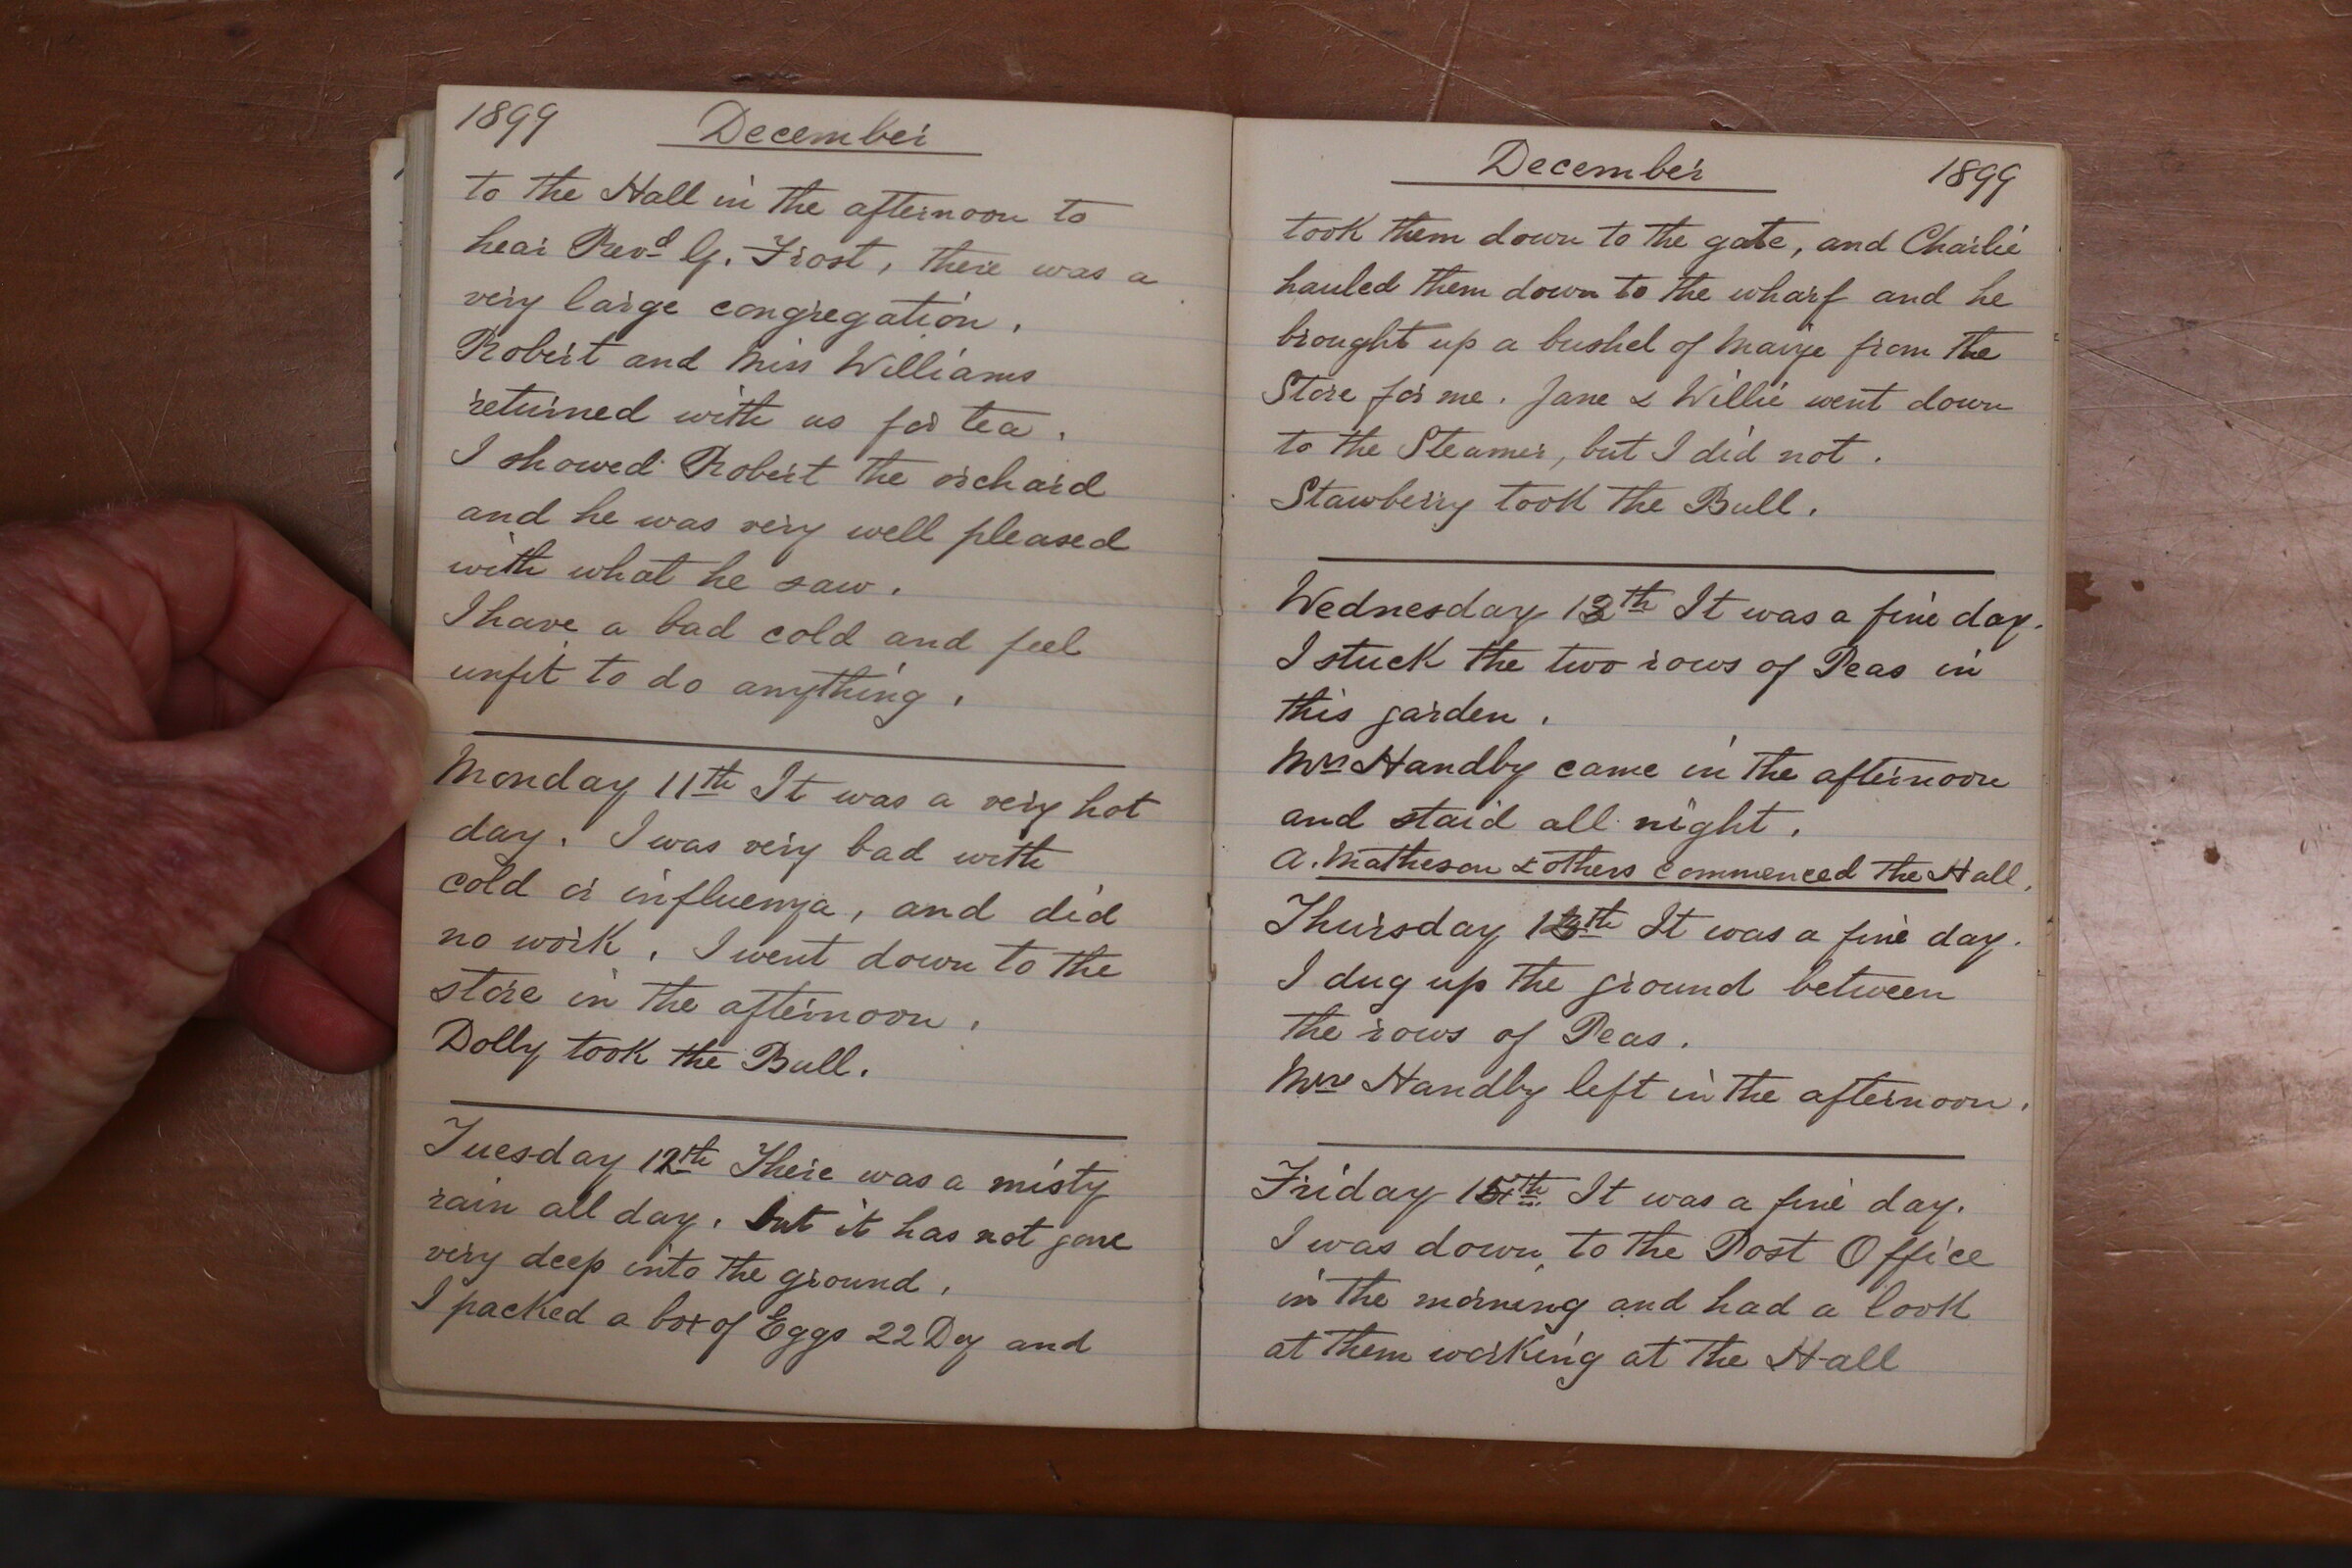 1899 December
to the Hall in the afternoon to
hear Revd G. Frost, there was a
very large congregation.
Robert and Miss Williams
returned with us for tea.
I showed Robert the orchard
and he was very well pleased
with what he saw.
I have a bad cold and feel
unfit to do anything.
Monday 11th It was a very hot
day. I was very bad with
cold or influenza, and did
no work. I went down to the
store in the afternoon.
Dolly took the Bull.
Tuesday 12th There was a misty
rain all day. but it has not gone
very deep into the ground.
I packed a box of Eggs 22 Doz and
December 1899
took them down to the gate, and Charlie
hauled them down to the wharf and he
brought up a bushel of Maize from the
Store for me. Jane & Willie went down
to the Steamer, but I did not.
Stawberry took the Bull.
Wednesday 13th It was a fine day.
I stuck the two rows of Peas in
this garden.
Mrs Handby came in the afternoon
and staid all night.
A. Matheson & others commenced the Hall.
Thursday th It was a fine day.
I dug up the ground between
the rows of Peas.
Mrs Handby left in the afternoon.
Friday 15th It was a fine day.
I was down to the Post Office
in the morning and had a look
at them working at the Hall